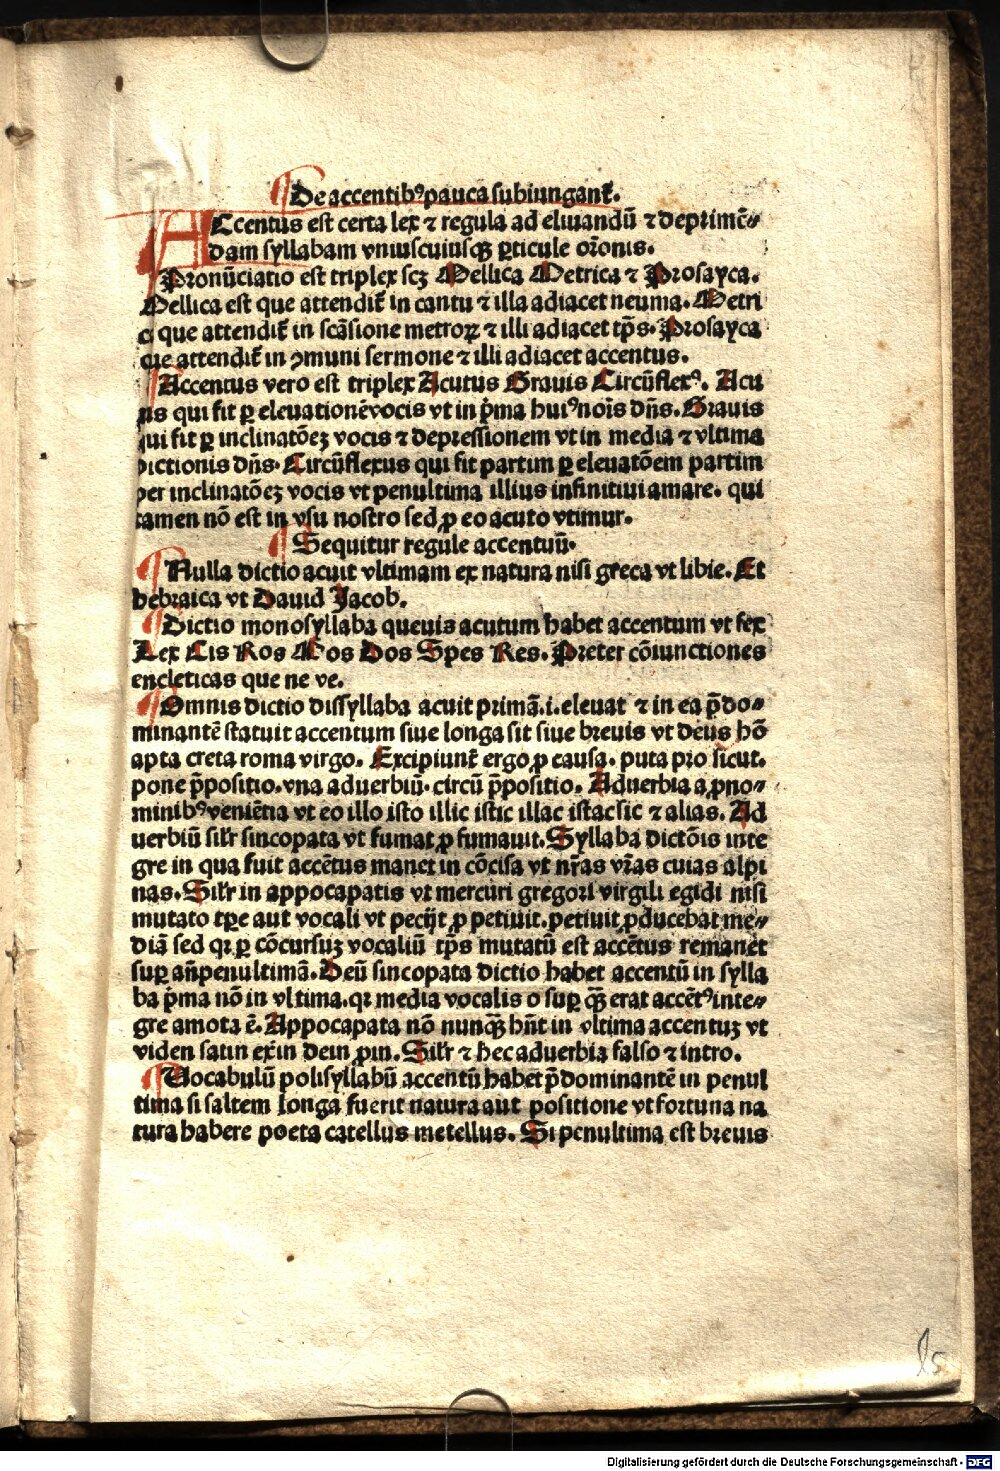 ¶De accentibꝰ pauca subiungant̄.
ACcentus est certa lex ⁊ regula ad eliuandū ⁊ deprimē⸗
dam syllabam vniuscuiusqꝫ ꝑticule or̄onis.
Pronūciatio est triplex scꝫ Mellica Metrica ⁊ Prosayca.
Mellica est que attendit̄ in cantu ⁊ illa adiacet neuma. Metri
c que attendit̄ in scāsione metroꝝ ⁊ illi adiacet tp̄s. Prosayca
que attendit̄ in ꝯmuni sermone ⁊ illi adiacet accentus.
¶Accentus vero est triplex Acutus Grauis Circūflexꝰ. Acu
tus qui fit ꝑ eleuationē vocis vt in p̄ma huiꝰ nois̄ dn̄s. Grauis
qui fit ꝑ inclinatōeꝫ vocis ⁊ depressionem vt in media ⁊ vltima
dictionis dn̄s. Circūflexus qui fit partim ꝑ eleuatōem partim
per inclinatōeꝫ vocis vt penultima illius infinitiui amare. qui
tamen nō est in vsu nostro sed ꝓ eo acuto vtimur.
¶Sequitur regule accentuū.
¶Nulla dictio acuit vltimam ex natura nisi greca vt libie. Et
hebraica vt Dauid Jacob.
¶Dictio monosyllaba queuis acutum habet accentum vt fex
Lex Lis Ros Mos Dos Spes Res. Preter cōiunctiones
encleticas que ne ve.
¶Omnis dictio dissyllaba acuit primā .i. eleuat ⁊ in ea p̄do⸗
minantē statuit accentum siue longa sit siue breuis vt deus hō
apta creta roma virgo. Excipiunt̄ ergo ꝓ causa. puta pro sicut.
pone p̄positio. vna aduerbiū. circū p̄positio. Aduerbia a ꝓno⸗
minibꝰ veniētia vt eo illo isto illic istic illac istac sic ⁊ alias. Ad
uerbiū silr̄ sincopata vt fumat ꝓ fumauit. Syllaba dictōis inte
gre in qua fuit accētus manet in cōcisa vt nr̄as vr̄as cuias alpi
nas. Silr̄ in appocapatis vt mercuri gregori virgili egidi nisi
mutato tꝑe aut vocali vt pecijt ꝓ petiuit. petiuit ꝓducebat me⸗
diā sed qꝛ ꝑ cōcursuꝫ vocaliū tp̄s mutatū est accētus remanet
suꝑ an̄penultimā. Deū sincopata dictio habet accentū in sylla
ba p̄ma nō in vltima. qꝛ media vocalis o suꝑ qꝫ̄ erat accētꝰ inte⸗
gre amota ē. Appocapata nō nunqꝫ̄ hn̄t in vltima accentuꝫ vt
viden satin exin dein ꝓin. Silr̄ ⁊ hec aduerbia falso ⁊ intro.
¶Vocabulū polisyllabū accentū habet p̄dominantē in penul
tima si saltem longa fuerit natura aut positione vt fortuna na
tura habere poeta catellus metellus. Si penultima est breuis
Digitalisierung gefördert durch die Deutsche Forschungsgemeinschaft - DFG